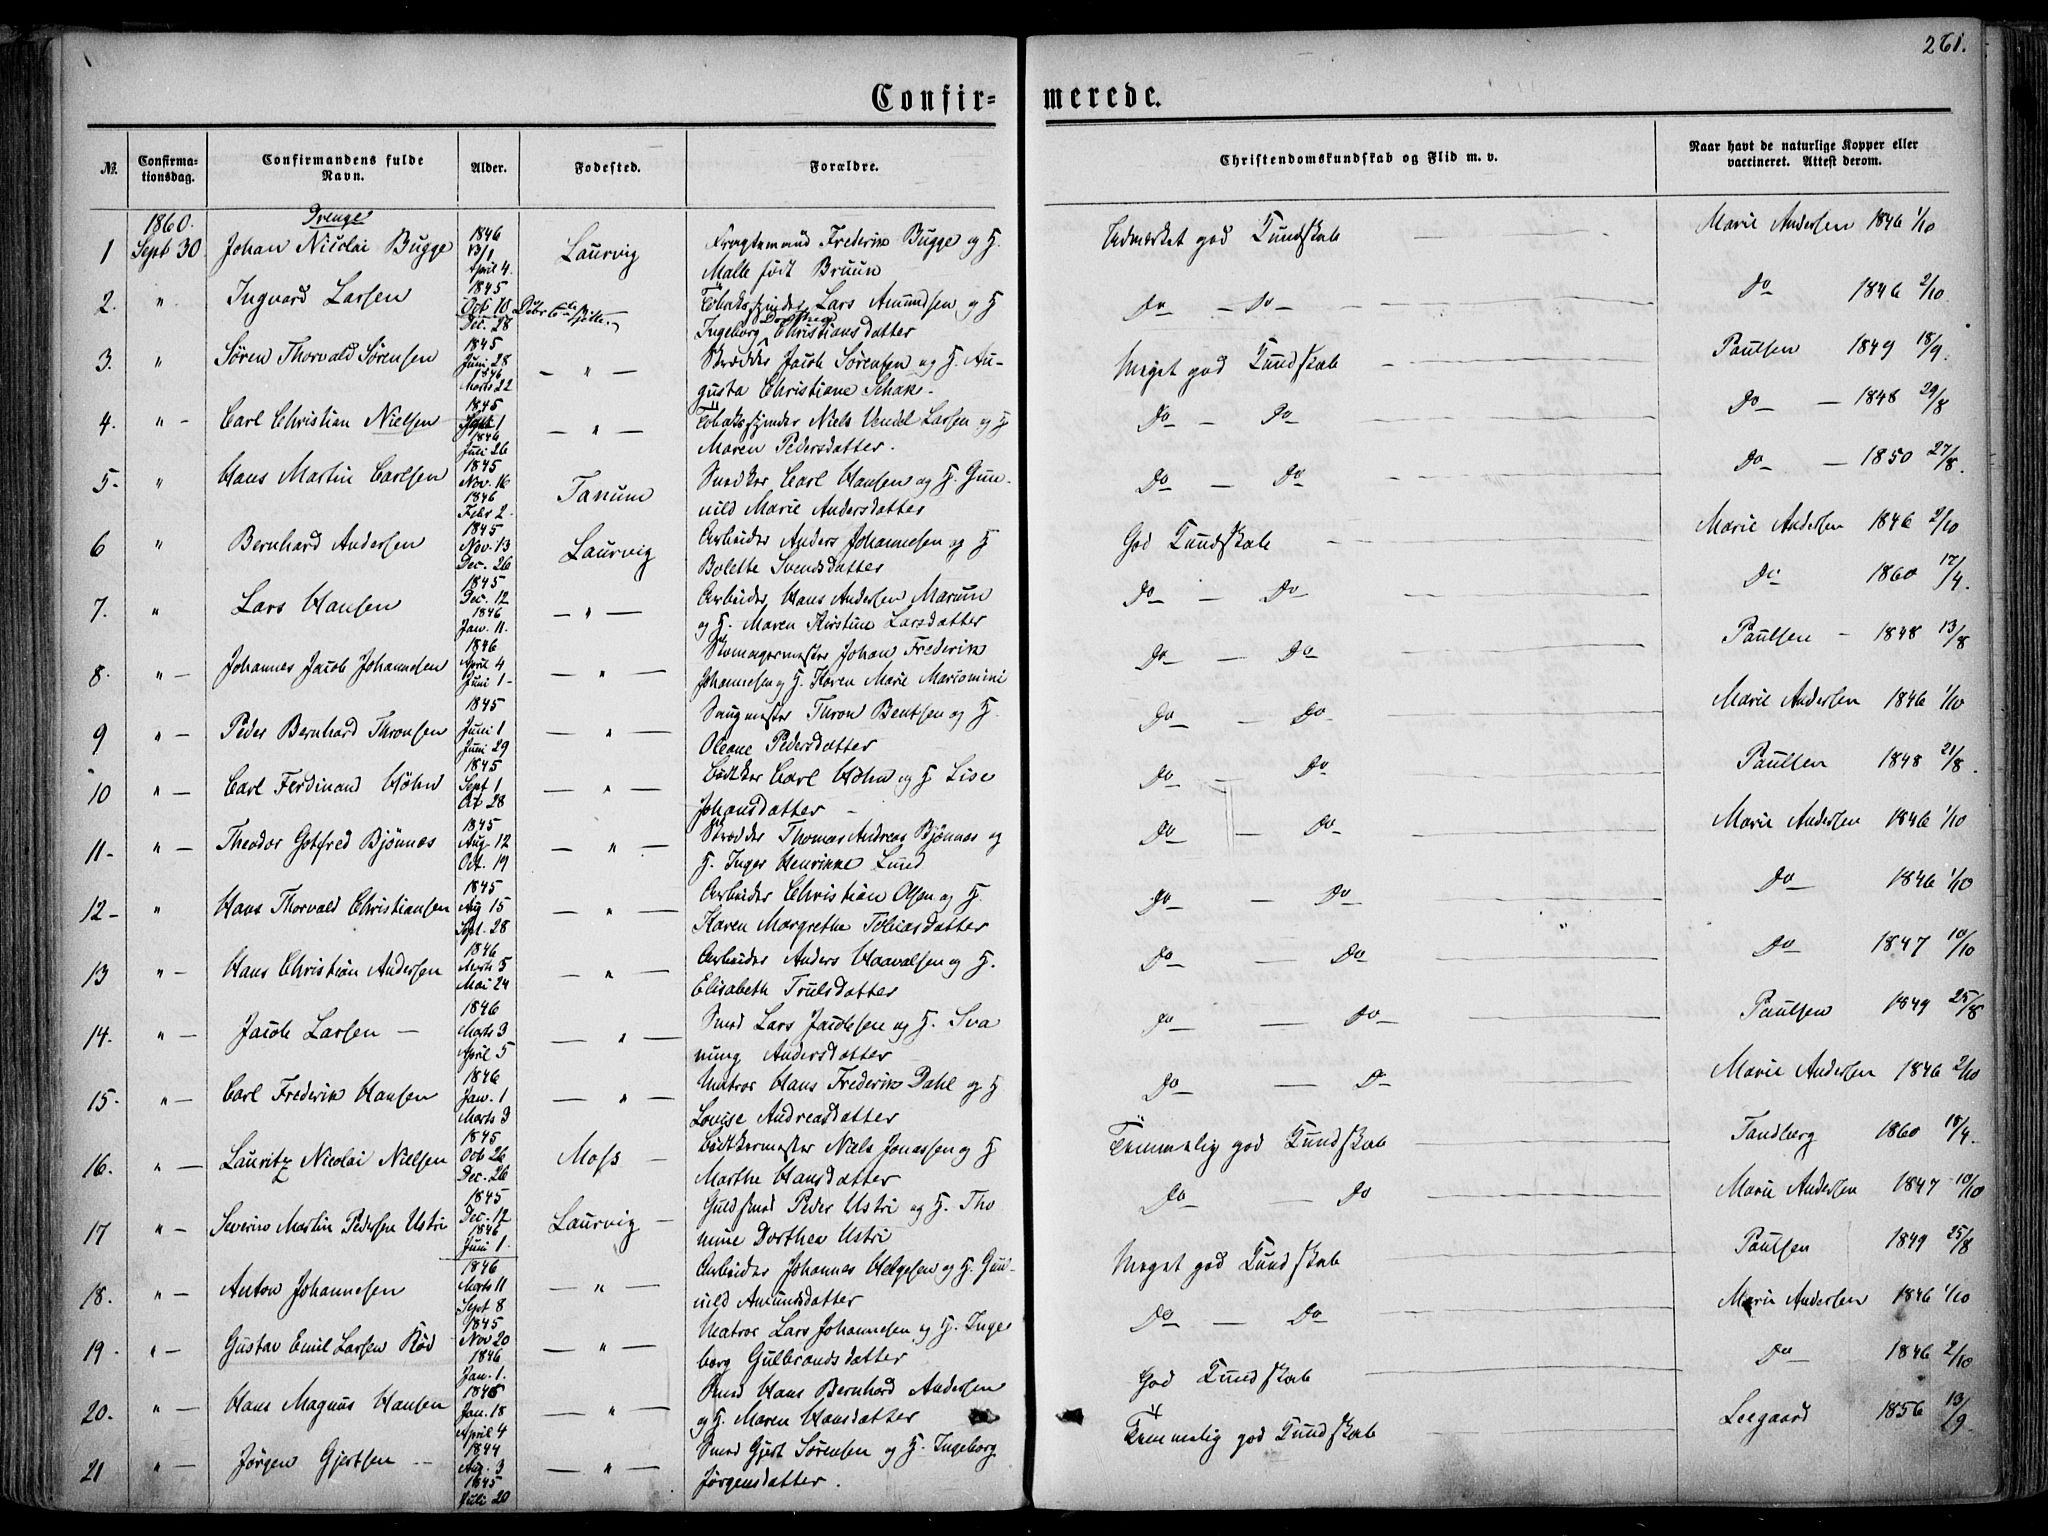 261.
Confir= merede.
№. Confirma-tionsdag. Confirmandens fulde Navn. Alder. Fodested. Forældre. Christendomskundskab og Flid m. v. Naar havt de naturlige Kopper eller vaccineret. Attest derom.
1860. Drenge 1846
1 Sept 30 Johan Nicolai Bugge 13/1 April 4. Laurvig Fragtemand Frederik Bugge og H. Malle født Bruun Udmærket god Kundskab Marie Andersen 1846 1/10
2. " Ingvard Larsen 1845 Oct 18 Dec. 28 Tobaksspinder Lars Amundsen og H Ingeborg Dorthea Christiansdatter Do — Do — Do 1846 2/10
3. " Søren Thorvald Sørensen 1845 Juni 28 1846 Marts 22 — " — Skrædder Jacob Sørensen og H. Augusta Christiane Schak. Meget god Kundskab Paulsen 1849 18/9.
4. " - Carl Christian Nielsen 1845 Sept 1 1846 Juli 26 — " — Tobaksspinder Niels Vendel Larsen og H Maren Pedersdatter. Do — Do — Do — 1848 29/8
5. " Hans Martin Carlsen 1845 Nov. 16 1846 Febr 2. Tanum Snedker Carl Hansen og H. Gunild Marie Andersdatter Do — Do Do — 1850 27/8.
6 " Bernhard Andersen 1845 Nov. 13 Dec. 26 Laurvig Arbeider Anders Johannesen og H Bolette Svendsdatter God Kundskab Marie Andersen 1846 2/10
7. " Lars Hansen 1845 Dec. 12 1846 Jan. 11. — " — Arbeider Hans Andersen Marum og H. Maren Kirstine Larsdatter Do — Do Do 1860 17/4.
8. " — Johannes Jacob Johannesen 1846 April 4 Juni 1 — " — Skomagermester Johan Frederik Johannesen og H. Karen Marie Mariomini Do — Do Paulsen - 1848 13/8
9 " — Peder Bernhard Thronsen 1845 Juni 1 Juni 29 — " — Saugmester Thron Bentsen og H. Oleane Pedersdatter Do — Do Marie Andersen 1846 1/10
10 " — Carl Ferdinand Höhn 1845 Sept 1 Oct 28 — " — Bødtker Carl Höhn og H. Lise Johansdatter — Do — Do Paulsen 1848 21/8.
11- " — Theodor Gotfred Bjönnes 1845 Aug. 12 Oct. 19 — " — Skrædder Thomas Andreas Bjönnes og H. Inger Henrikke Lund Do — Do Marie Andersen 1846 1/10
12- " Hans Thorvald Christiansen 1845 Aug 15 Sept. 28 — " — Arbeider Christian Olsen og H. Karen Margrethe Tobiasdatter Do — Do Do 1846 1/10
13 " — Hans Christian Andersen 1846 Marts 5 Mai 24 — " — Arbeider Anders Haavalsen og H. Elisabeth Trulsdatter Do — Do Do 1847 10/10
14. " — Jacob Larsen — 1846 Marts 3 April 5 — " — Smed Lars Jacobsen og H. Svanung Andersdatter Do — Do Paulsen 1849 25/8
15. " — Carl Frederik Hansen 1846 Jan. 1 Marts 3 — " — Matros Hans Frederik Dahl og H Louise Andreasdatter Do — D Marie Andersen 1846 2/10
16. " — Lauritz Nicolai Nielsen 1845 Octb 26 Dec. 26 Moss — Bødtkermester Niels Jonassen og H Marthe Hansdatter Temmelig god Kundskab Tandberg 1860 18/4.
17 " — Severin Martin Pedersen Ustri 1845 Dec. 12 1846 Juni 1. Laurvig — Guldsmed Peder Ustri og H. Thomine Dorthea Ustri Do — Do Marie Andersen 1847 10/10
18. " — Anton Johannesen 1846 Marts 11 Sept 8 — " — Arbeider Johannes Helgesen og H. Gunild Amundsdatter Meget god Kundskab Paulsen 1849 25/8
19. " — Gustav Emil Larsen Röd 1845 Nov 20 1846 Jan. 1. — " — Matros Lars Johannesen og H. Ingeborg Gulbrandsdatter Do — Do Marie Andersen 1846 1/10
20. " — Hans Magnus Hansen 1846 Jan. 18 April 4 — " — Smed Hans Bernhard Andersen og H. Maren Hansdatter God Kundskab Do 1846 2/10
21 " — Jørgen Gjertsen 1844 Aug. 3 1845 Juli 20 — " — Smed Gjert Sørensen og H. Ingeborg Jørgensdatter. Temmelig god Kundskab Leegaard 1856 13/9.